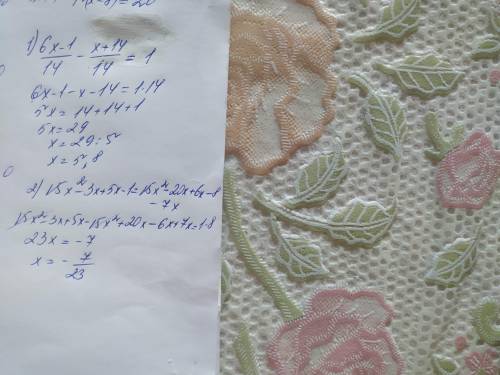 1) 6x-1/14 - x+14/14 = 1
6x-1-x-14=1·14
5x=14+14+1
5x=29
x=29:5
x=5,8
2) 15x²-3x+5x-1=15x²-20x+6x-8
-7x
15x²-3x+5x-15x²+20x-6x+7x=1-8
23x=-7
x=-7/23